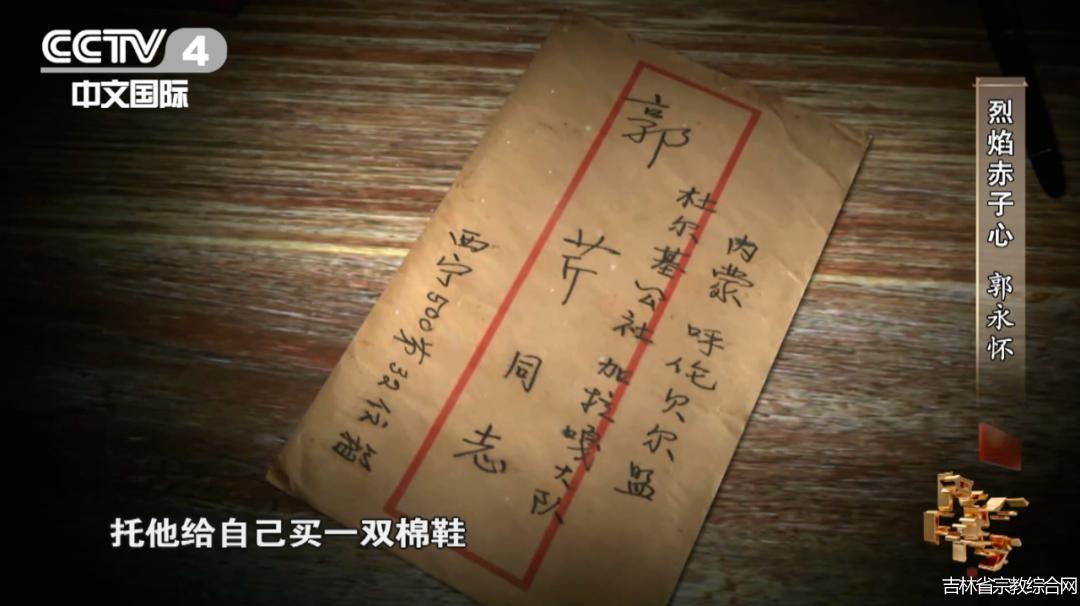 CCTV 4
中文国际
烈焰赤子心 郭永怀
内蒙 呼伦贝尔盟
杜尔基公社 加拉嘎大队
郭芹同志
西宁500号32信箱
托他给自己买一双棉鞋
吉林省宗教综合网